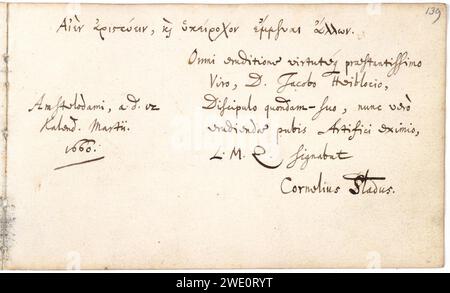 139
Αἰὲν ἀριστεύειν, καὶ ὑπείροχον ἔμμεναι ἄλλων.
Omni eruditione virtuteq praestantissimo
Viro, D. Jacobo Heiblocio,
Discipulo quondam suo, nunc verò
erudiendae pubis Artifici eximio,
L. M. Q. signabat
Cornelius Sladus.
Amstelodami, a. d. VI
Kalend. Martii.
1660.
alamy
Image ID: 2WE0RYT
www.alamy.com